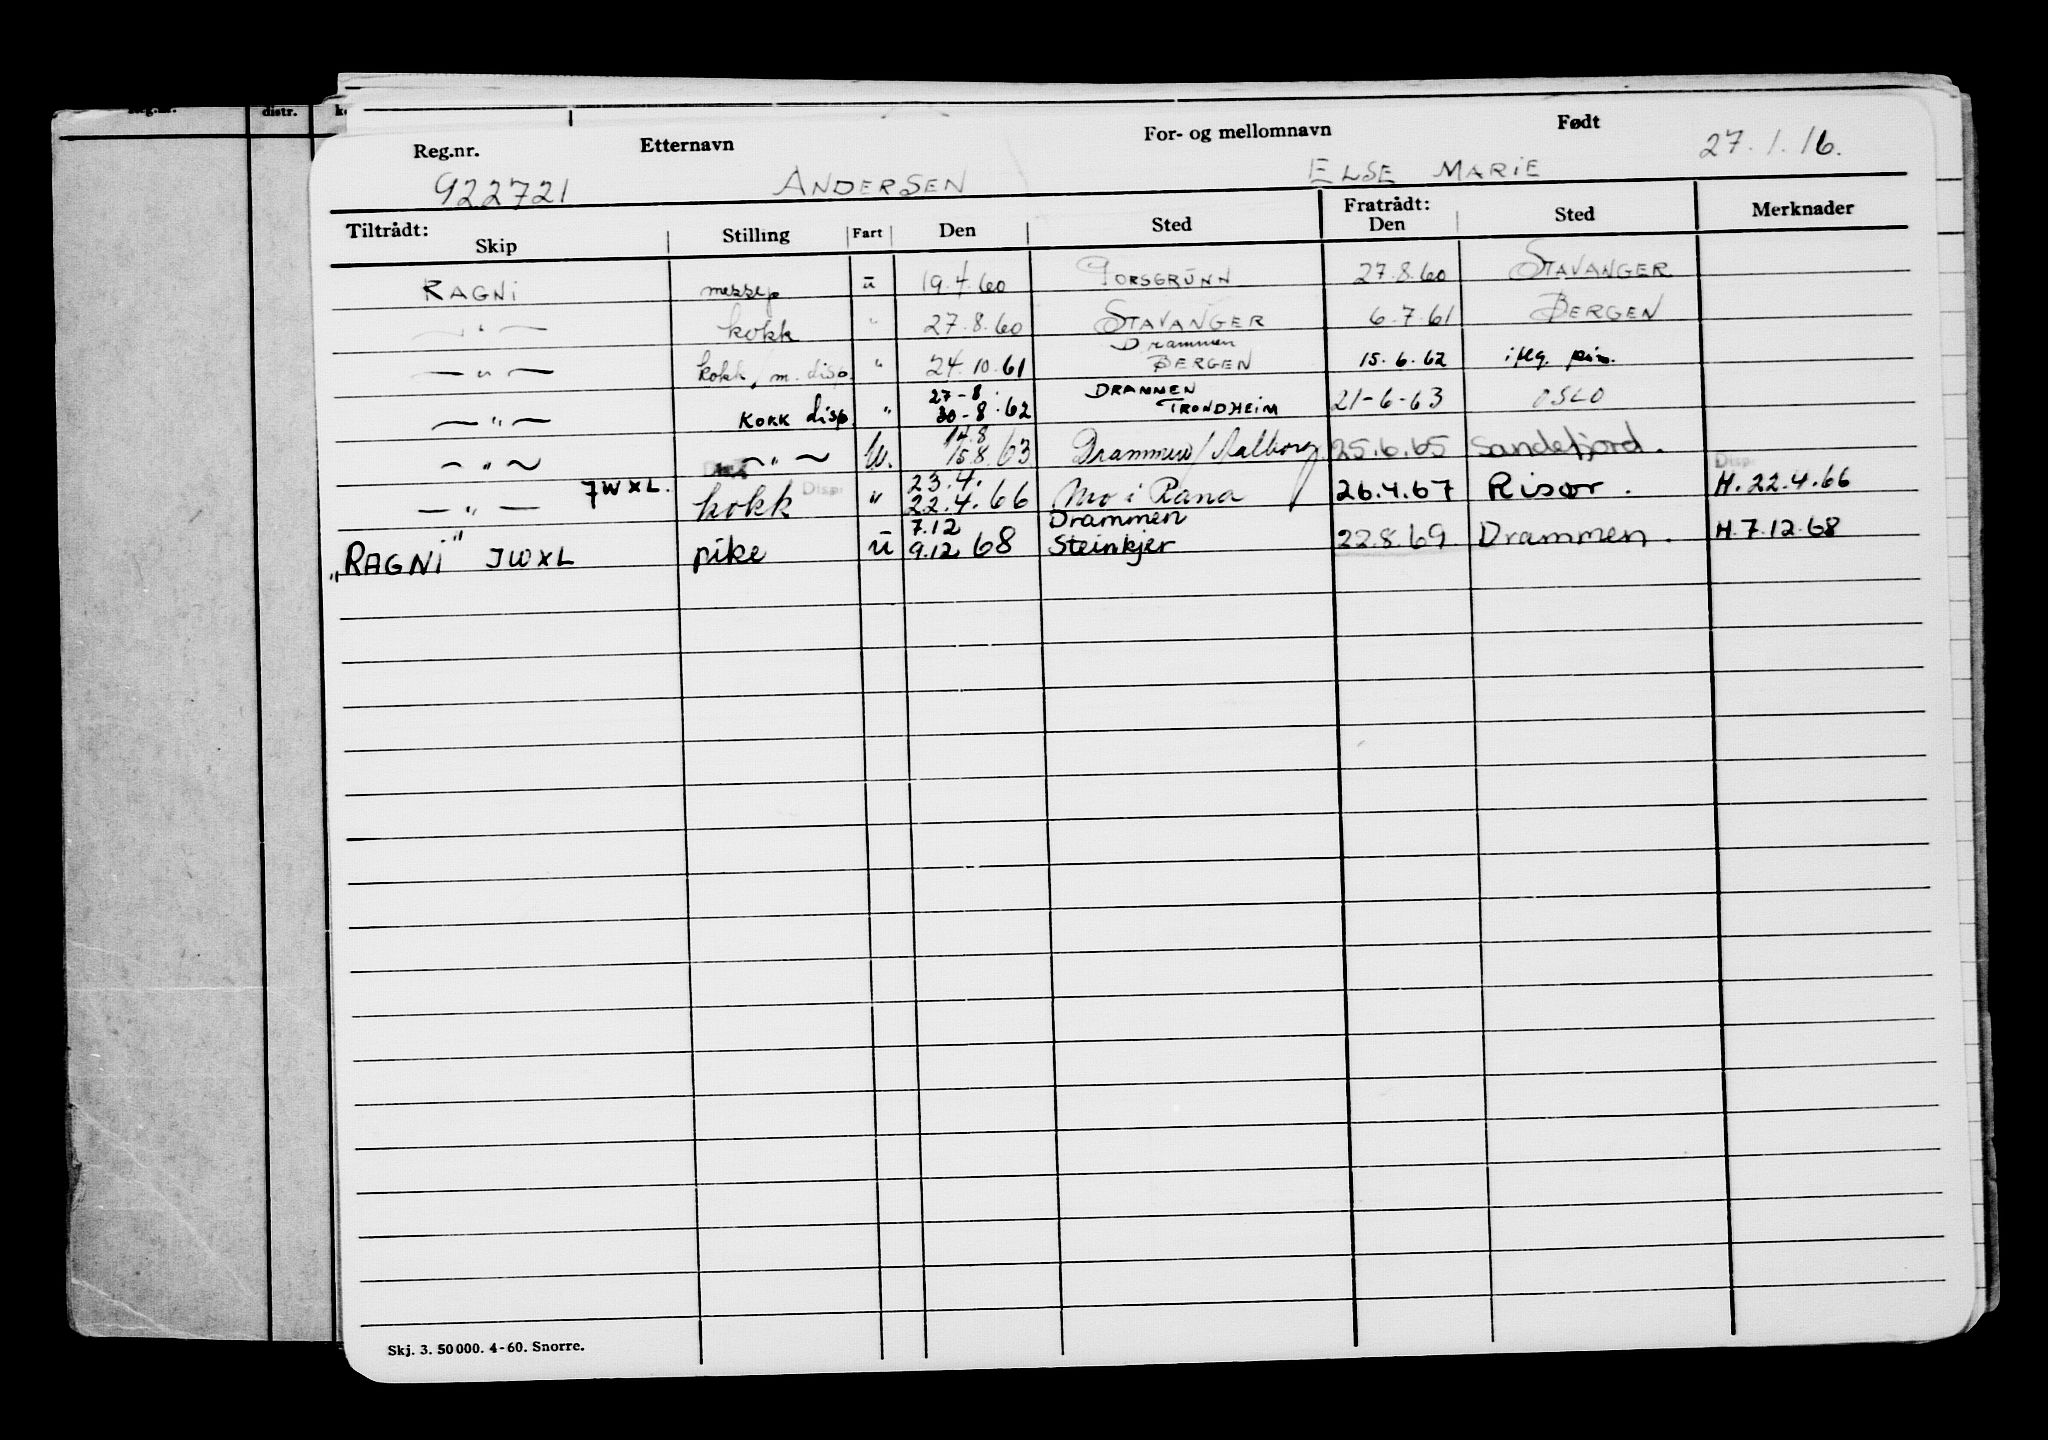 Reg.nr. Etternavn For- og mellomnavn Født
922721 ANDERSEN ELSE MARIE 27.1.16.
Tiltrådt: Skip Stilling Fart Den Sted Fratrådt: Den Sted Merknader
RAGNI ü 19.4.60 PORSGRUNN 27.8.60 STAVANGER
— " — kokk " 27.8.60 STAVANGER 6.7.61 BERGEN
Drammen
— " — kokk/m. disp. " 24.10.61 BERGEN 15.6.62 iflg.
27-8 DRAMMEN
— " — KOKK disp. " 30-8.62 TRONDHEIM 21-6-63 OSLO
14.8
— " — — " — U. 15.8.63 Drammen/Aalborg 25.6.65 Sandefjord.
23.4. Disp.
— " — JWXL. kokk Disp. " 22.4.66 Mo i Rana 26.4.67 Risør. H. 22.4.66
7.12 Drammen
"RAGNI" JWXL pike ü 9.12 68 Steinkjer 22.8.69. Drammen. H. 7.12.68
Skj. 3. 50000. 4-60. Snorre.
distr.